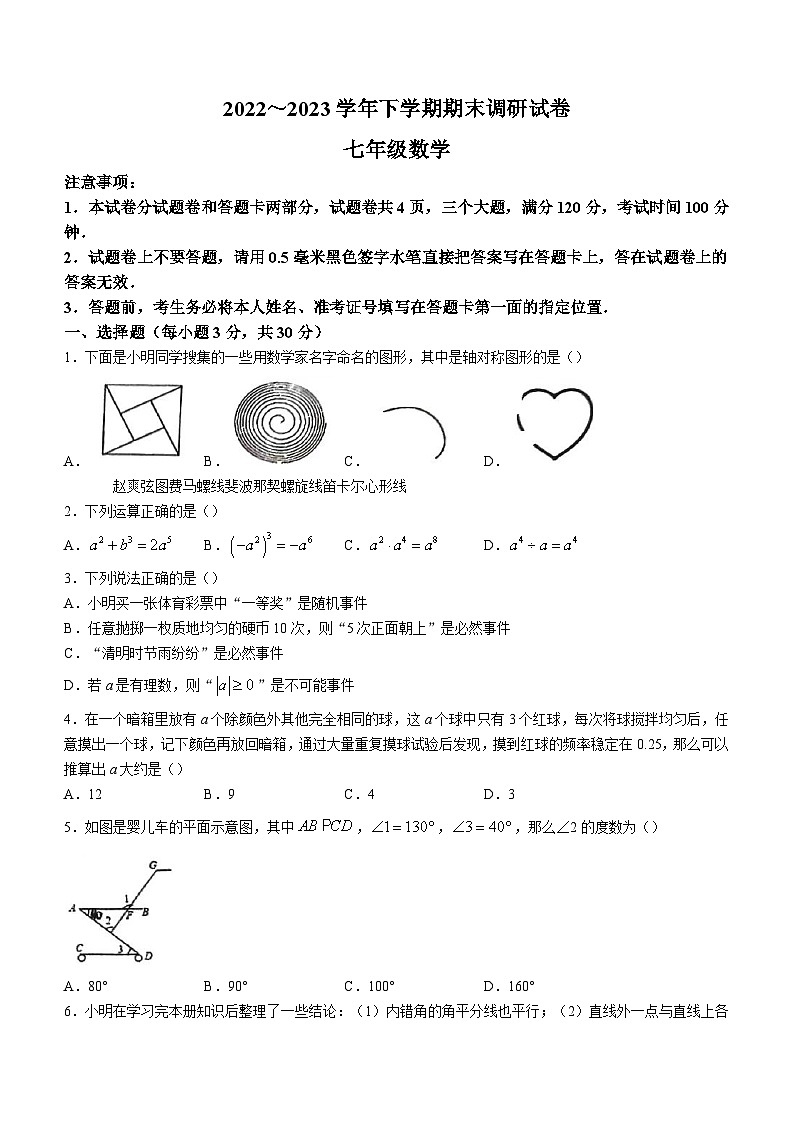 2022～2023学年下学期期末调研试卷
七年级数学
注意事项：
1．本试卷分试题卷和答题卡两部分，试题卷共4页，三个大题，满分120分，考试时间100分
钟．
2．试题卷上不要答题，请用0.5毫米黑色签字水笔直接把答案写在答题卡上，答在试题卷上的
答案无效．
3．答题前，考生务必将本人姓名、准考证号填写在答题卡第一面的指定位置．
一、选择题（每小题3分，共30分）
1．下面是小明同学搜集的一些用数学家名字命名的图形，其中是轴对称图形的是（）
A． B． C． D．
赵爽弦图费马螺线斐波那契螺旋线笛卡尔心形线
2．下列运算正确的是（）
A．a²+b³=2a⁵ B．(−a²)³=−a⁶ C．a²·a⁴=a⁸ D．a⁴÷a=a⁴
3．下列说法正确的是（）
A．小明买一张体育彩票中“一等奖”是随机事件
B．任意抛掷一枚质地均匀的硬币10次，则“5次正面朝上”是必然事件
C．“清明时节雨纷纷”是必然事件
D．若a是有理数，则“|a|≥0”是不可能事件
4．在一个暗箱里放有a个除颜色外其他完全相同的球，这a个球中只有3个红球，每次将球搅拌均匀后，任
意摸出一个球，记下颜色再放回暗箱，通过大量重复摸球试验后发现，摸到红球的频率稳定在0.25，那么可以
推算出a大约是（）
A．12 B．9 C．4 D．3
5．如图是婴儿车的平面示意图，其中AB PCD，∠1=130°，∠3=40°，那么∠2的度数为（）
G
1
A F B
2
C 3 D
A．80° B．90° C．100° D．160°
6．小明在学习完本册知识后整理了一些结论：（1）内错角的角平分线也平行；（2）直线外一点与直线上各